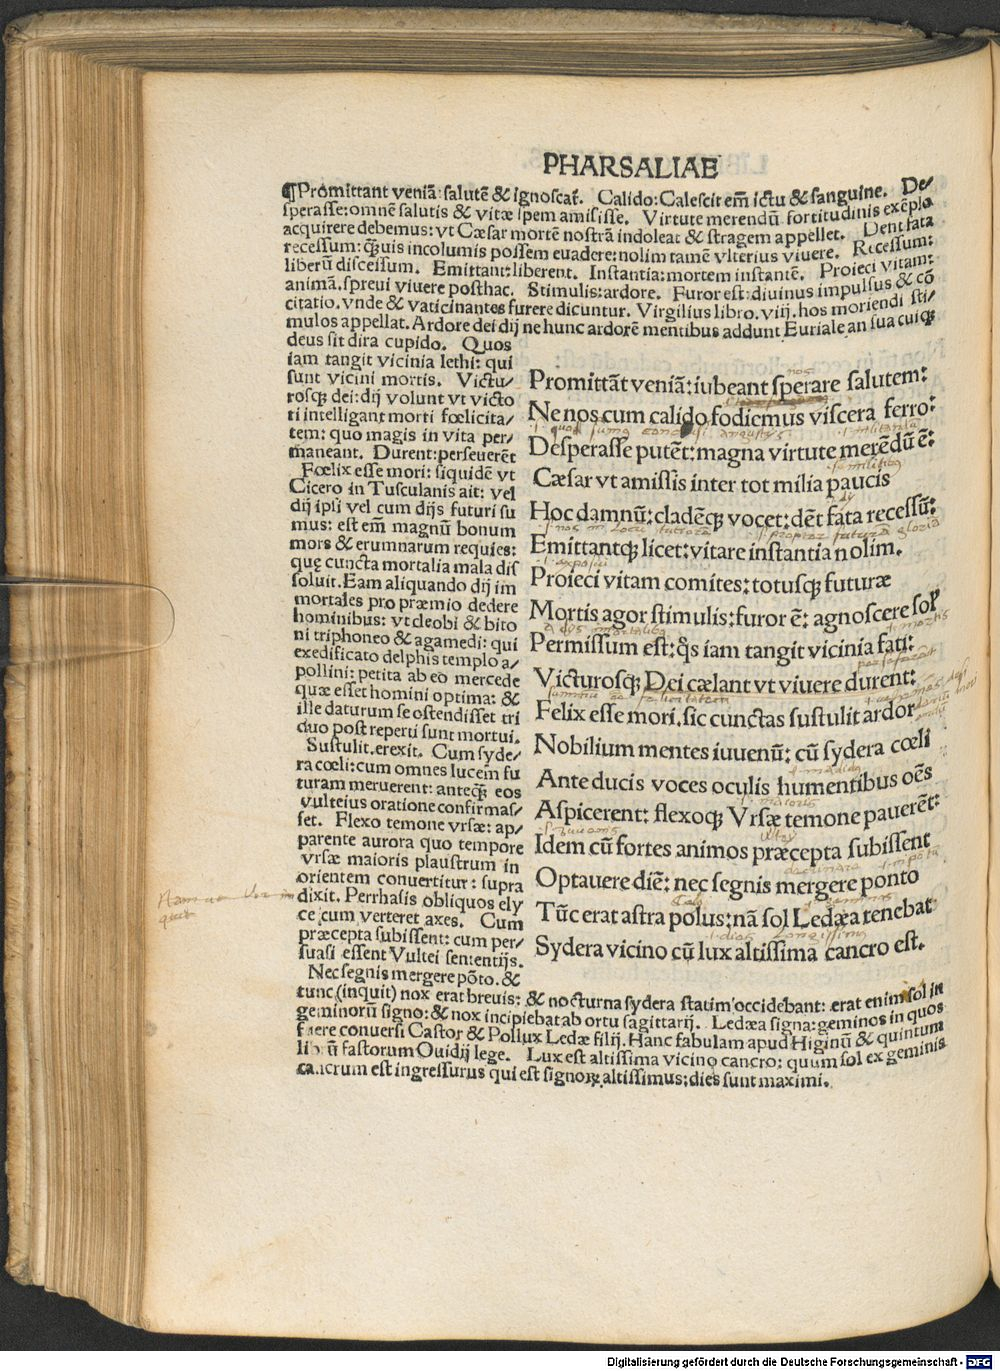 PHARSALIAE
¶Promittant veniã: salutẽ & ignoscãt. Calido: Calescit em̃ ictu & sanguine. De⸗
sperasse: omnẽ salutis & vitæ spem amisisse. Virtute merendũ fortitudinis exẽplo
acquirere debemus: vt Cæsar mortẽ nostrã indoleat & stragem appellet. Dent fata
recessum: q̃uis incolumis possem euadere: nolim tamẽ vlterius viuere. Recessum:
liberũ discessum. Emittant: liberent. Instantia: mortem instantẽ. Proieci vitam:
animã. spreui viuere posthac. Stimulis: ardore. Furor est: diuinus impulsus & cõ
citatio. vnde & vaticinantes furere dicuntur. Virgilius libro. viij. hos moriendi sti⸗
mulos appellat. Ardore dei dij ne hunc ardorẽ mentibus addunt Euriale an sua cuiqꝫ
deus sit dira cupido. Quos
iam tangit vicinia lethi: qui
sunt vicini mortis. Victu⸗
rosqꝫ dei: dij volunt vt victo
ti intelligant morti fœlicita⸗
tem: quo magis in vita per⸗
maneant. Durent: perseuerẽt
Fœlix esse mori: siquidẽ vt
Cicero in Tusculanis ait: vel
dij ipsi vel cum dijs futuri su
mus: est em̃ magnũ bonum
mors & erumnarum requies:
quę cuncta mortalia mala dis
soluit. Eam aliquando dij im
mortales pro præmio dedere
hominibus: vt cleobi & bito
ni triphoneo & agamedi: qui
exedificato delphis templo a⸗
pollini: petita ab eo mercede
quæ esset homini optima: &
ille daturum se ostendisset tri
duo post reperti sunt mortui.
Sustulit. erexit. Cum syde⸗
ra cœli: cum omnes lucem fu
turam meruerent: anteqꝫ eos
vulteius oratione confirmas⸗
set. Flexo temone vrsæ: ap⸗
parente aurora quo tempore
vrsæ maioris plaustrum in
orientem conuertitur: supra
dixit. Perrhasis obliquos ely
ce cum verteret axes. Cum
præcepta subissent: cum per⸗
suasi essent Vultei sententijs.
Nec segnis mergere põto. &
Promittãt veniã: iubeant sperare salutem:
nos
Ne nos cum calido fodiemus viscera ferro:
Desperasse putẽt: magna virtute merẽdũ ẽ:
Cæsar vt amissis inter tot milia paucis
Hoc damnũ: cladẽqꝫ vocet: dẽt fata recessũ:
Emittantqꝫ licet: vitare instantia nolim.
Proieci vitam comites: totusqꝫ futuræ
Mortis agor stimulis: furor ẽ: agnoscere solꝰ
Permissum est: q̃s iam tangit vicinia fati:
Victurosqꝫ Dei cælant vt viuere durent:
Felix esse mori. sic cunctas sustulit ardor
Nobilium mentes iuuenũ: cũ sydera cœli
Ante ducis voces oculis humentibus oẽs
Aspicerent: flexoqꝫ Vrsæ temone pauerẽt:
Idem cũ fortes animos præcepta subissent
Optauere diẽ: nec segnis mergere ponto
Tũc erat astra polus: nã sol Ledæa tenebat
Sydera vicino cũ lux altissima cancro est.
tunc (inquit) nox erat breuis: & nocturna sydera statim occidebant: erat enim sol in
geminorũ signo: & nox incipiebat ab ortu sagittarij. Ledæa signa: geminos in quos
fuere conuersi Castor & Pollux Ledæ filij. Hanc fabulam apud Higinũ & quintum
librũ fastorum Ouidij lege. Lux est altissima vicino cancro: quum sol ex geminis
cancrum est ingressurus qui est signoꝝ altissimus: dies sunt maximi.
Digitalisierung gefördert durch die Deutsche Forschungsgemeinschaft - DFG